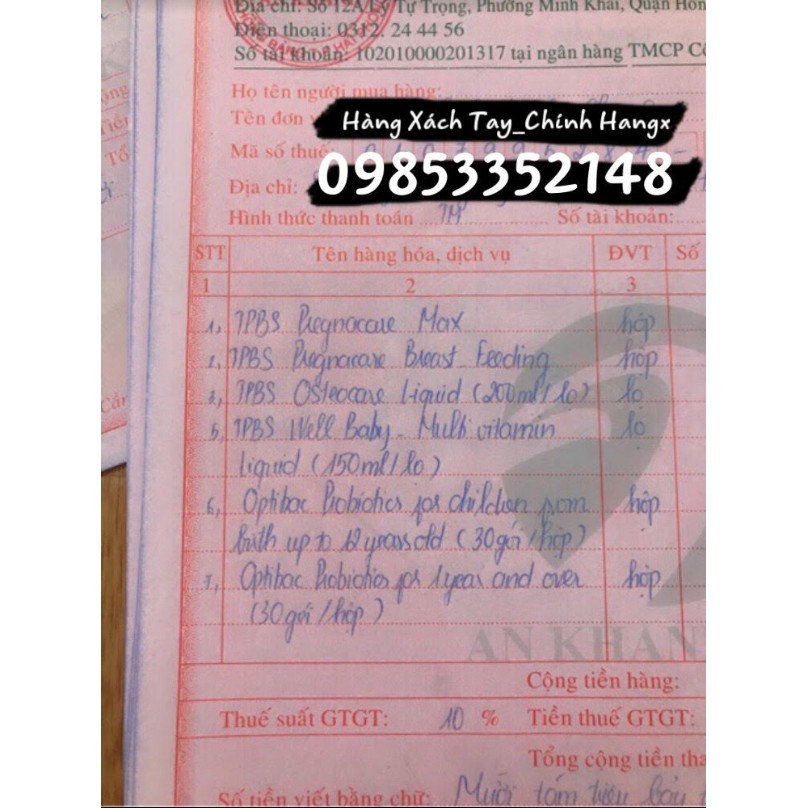 Địa chỉ: Số 12A Lý Tự Trọng, Phường Minh Khai, Quận Hồn
Điện thoại: 0312. 24 44 56
Số tài khoản: 102010000201317 tại ngân hàng TMCP Cô
Họ tên người mua hàng:
Tên đơn
Hàng Xách Tay_Chính Hangx
Mã số thuế:
Địa chỉ:
09853352148
Hình thức thanh toán TM Số tài khoản:
STT Tên hàng hóa, dịch vụ ĐVT Số
1 2 3
1, TPBS Pregnacare Max hộp
2, TPBS Pregnacare Breast Feeding hộp
3, TPBS Osteocare Liquid (200ml/lọ) lọ
5, TPBS Well Baby - Multi vitamin lọ
liquid (150ml/lọ)
6, Optibac Probiotics for children from hộp
birth up to 12 years old (30gói/hộp)
7, Optibac Probiotics for 1year and over hộp
(30gói/hộp)
AN KHAN
Cộng tiền hàng:
Thuế suất GTGT: 10 % Tiền thuế GTGT:
Tổng cộng tiền tha
Số tiền viết bằng chữ: Mười tám triệu bảy